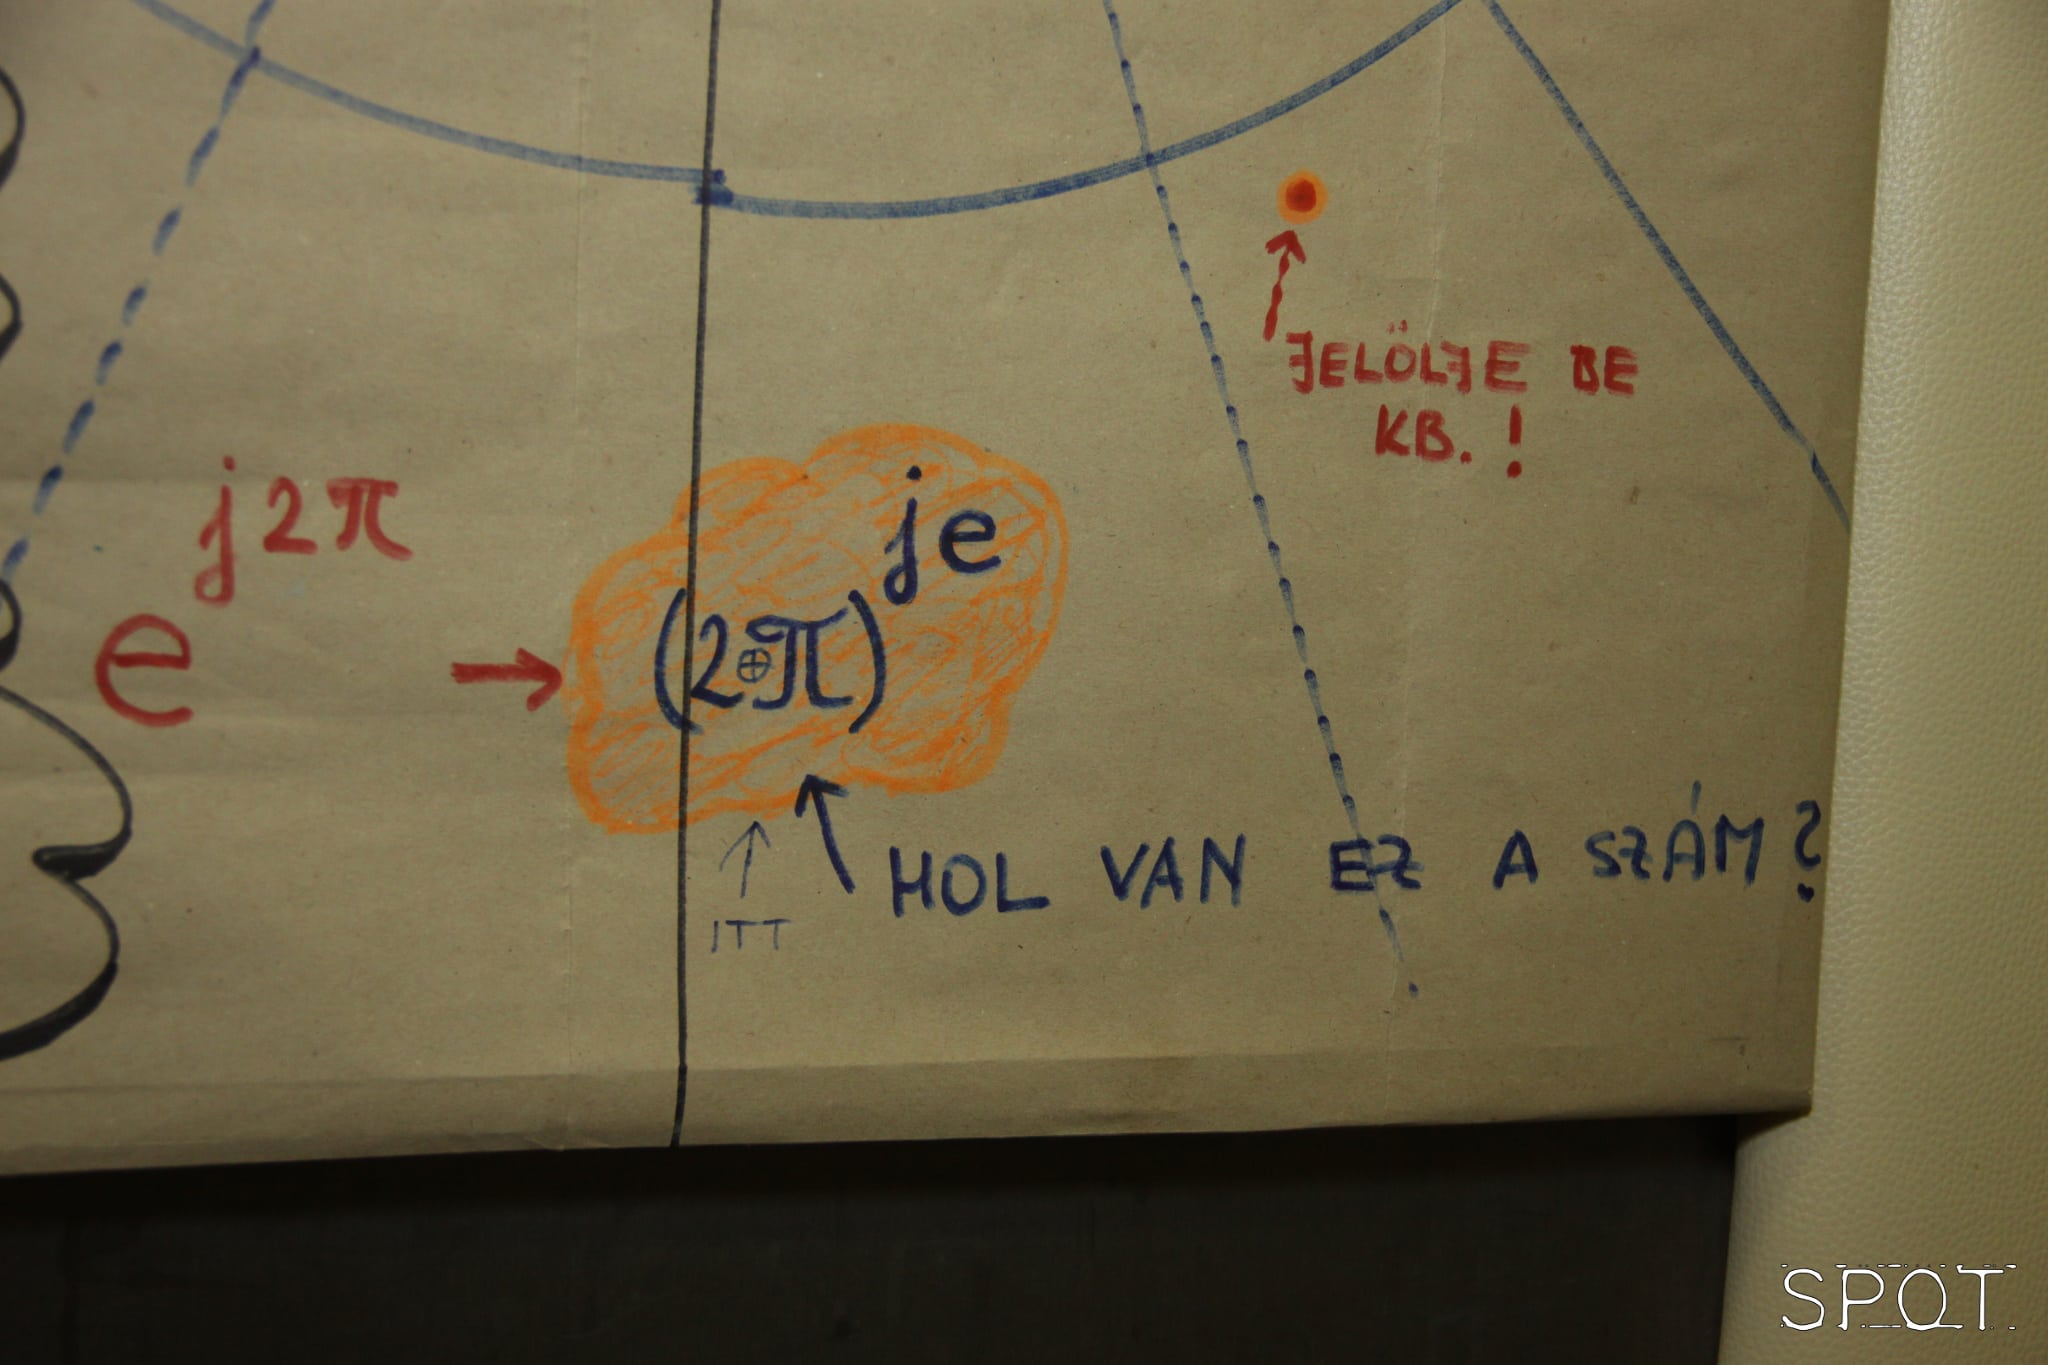 JELÖLJE BE
KB. !
e^{j2π}
→ (2⊕π)^{je}
HOL VAN EZ A SZÁM?
ITT
SPOT